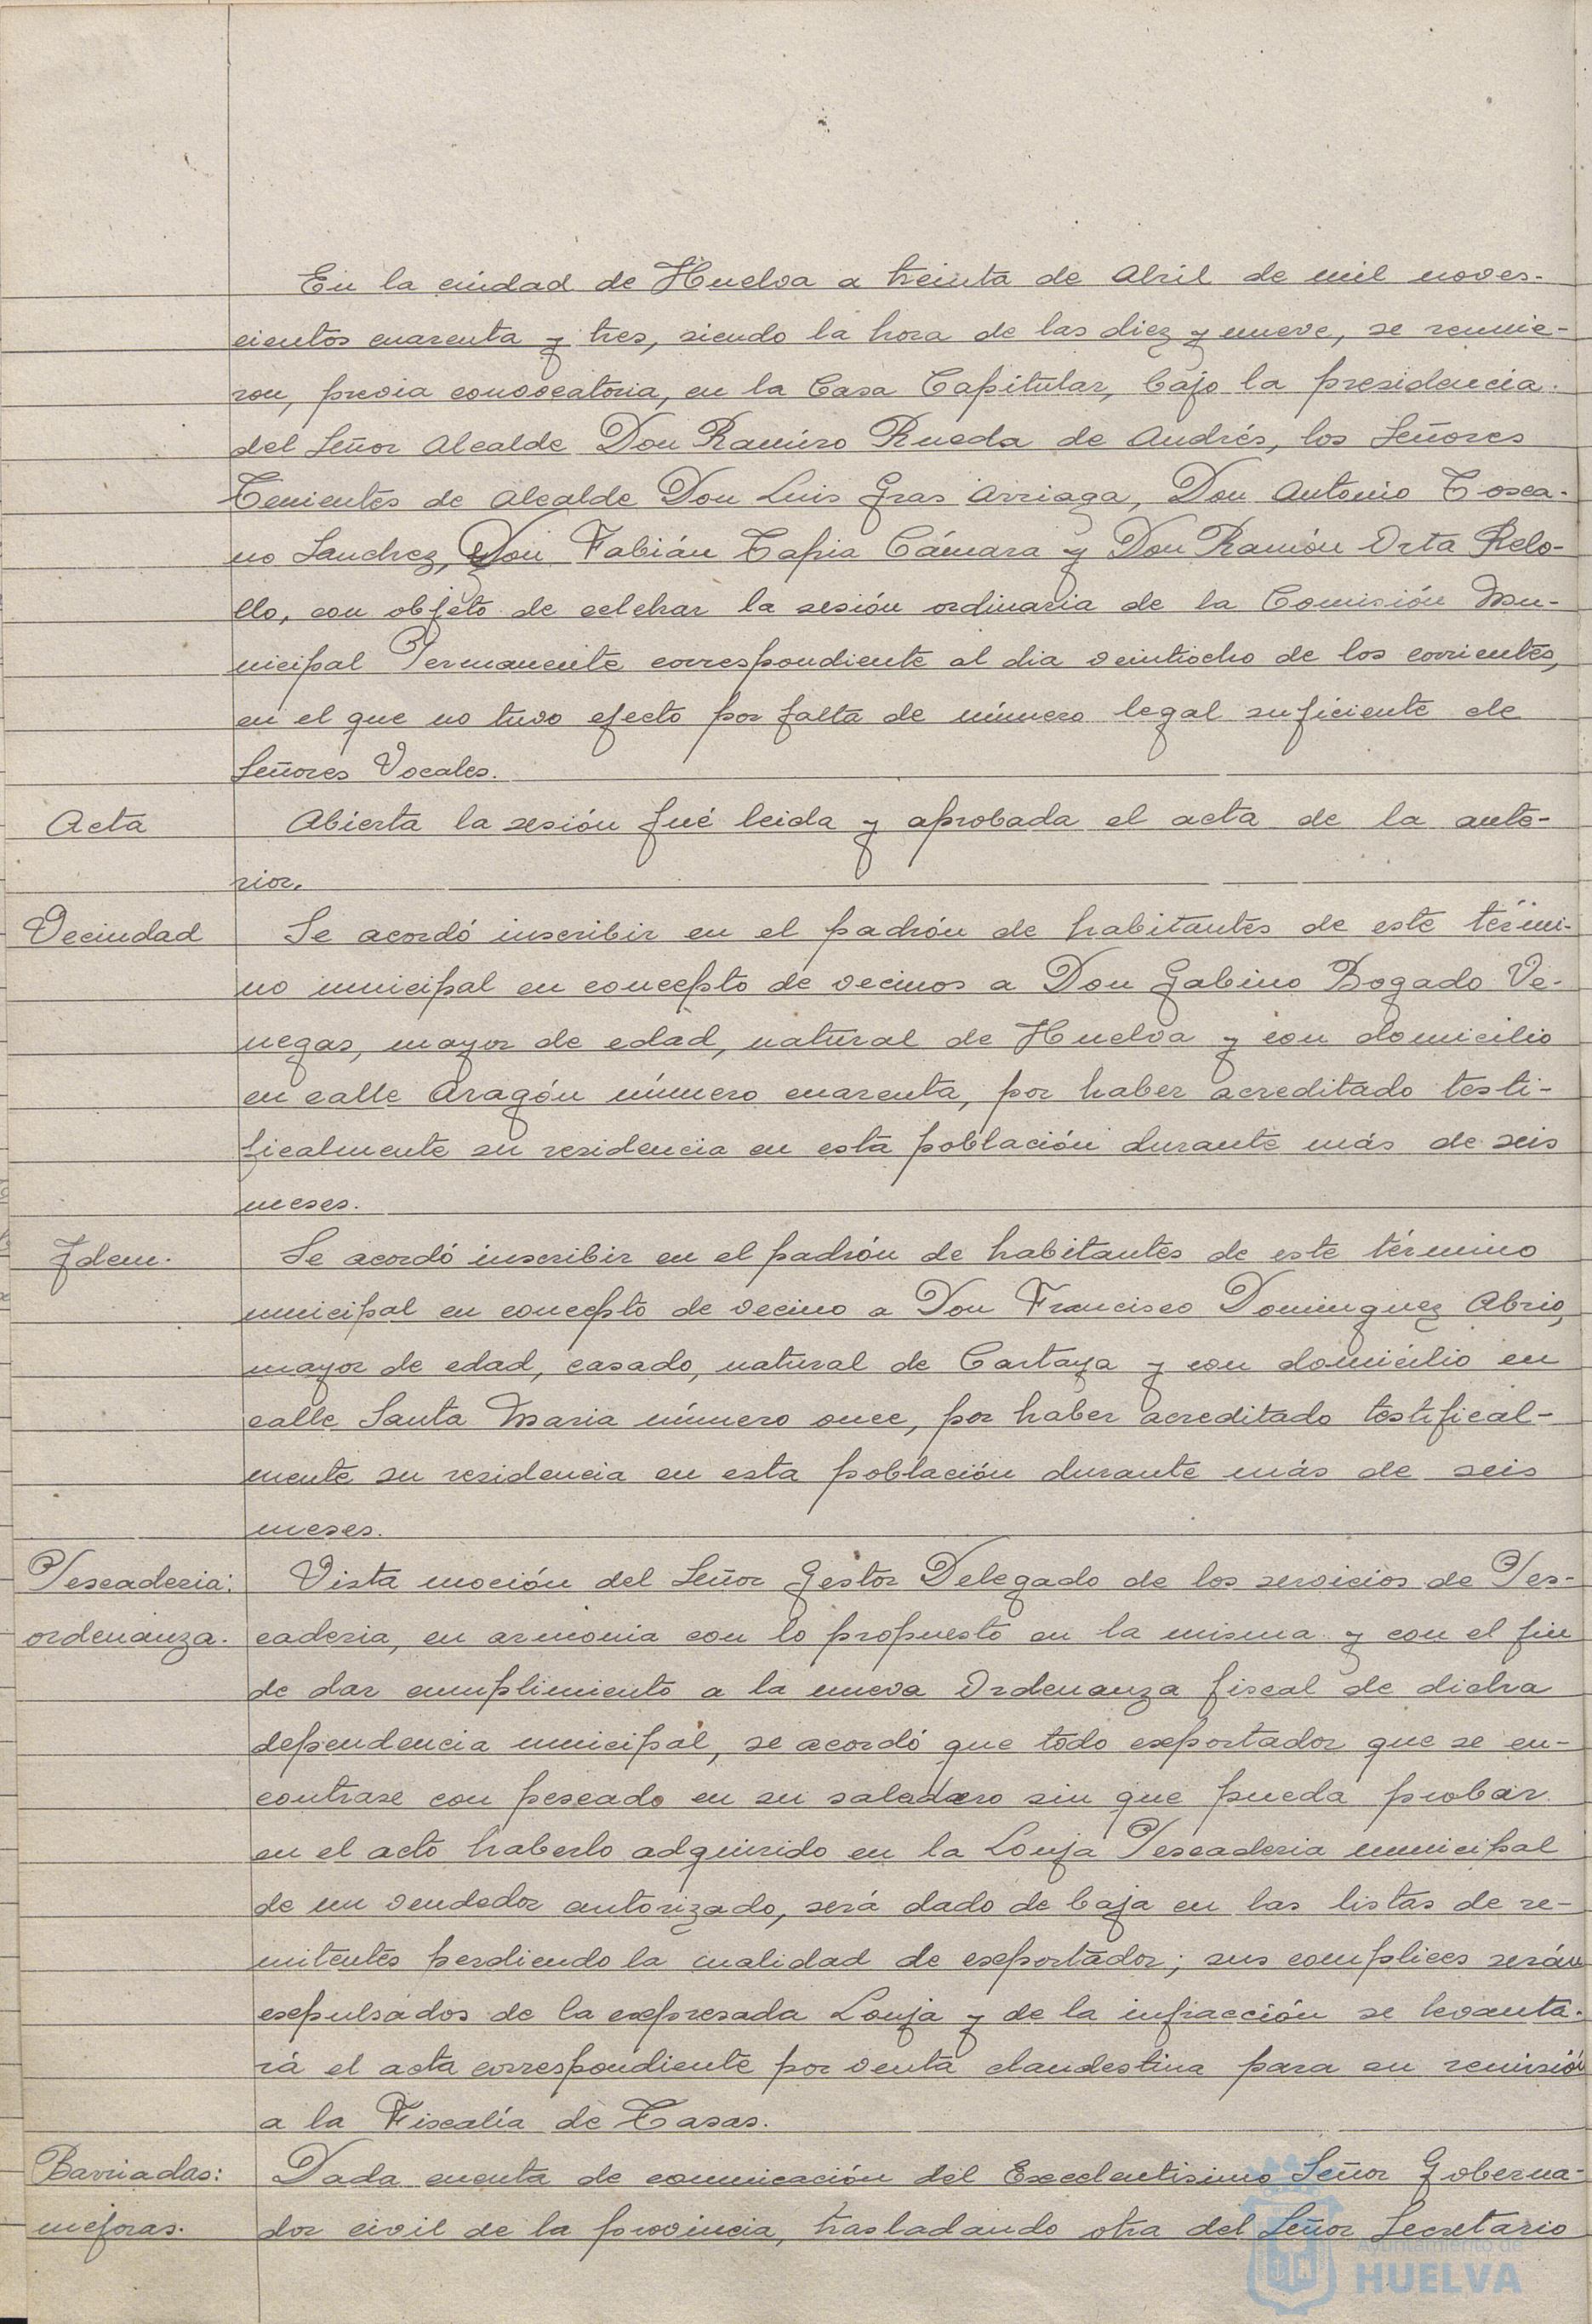 En la ciudad de Huelva a treinta de Abril de mil noves-
cientos cuarenta y tres, siendo la hora de las diez y nueve, se reunie-
ron, previa convocatoria, en la Casa Capitular, bajo la presidencia
del Señor Alcalde Don Ramiro Rueda de Andrés, los Señores
Tenientes de Alcalde Don Luis Gras Arriaga, Don Antonio Tosca-
no Sanchez, Don Fabián Tapia Cámara y Don Ramón Orta Rebo-
llo, con objeto de celebrar la sesión ordinaria de la Comisión Mu-
nicipal Permanente correspondiente al dia veintiocho de los corrientes,
en el que no tuvo efecto por falta de número legal suficiente de
Señores Vocales.
Acta
Abierta la sesión fué leida y aprobada el acta de la ante-
rior.
Vecindad
Se acordó inscribir en el padrón de habitantes de este térmi-
no municipal en concepto de vecinos a Don Gabino Bogado Ve-
negas, mayor de edad, natural de Huelva y con domicilio
en calle Aragón número cuarenta, por haber acreditado testi-
ficalmente su residencia en esta población durante más de seis
meses.
Idem.
Se acordó inscribir en el padrón de habitantes de este término
municipal en concepto de vecino a Don Francisco Dominguez Abrio,
mayor de edad, casado, natural de Cartaya y con domicilio en
calle Santa Maria número once, por haber acreditado testifical-
mente su residencia en esta población durante más de seis
meses.
Pescaderia:
ordenanza.
Vista moción del Señor Gestor Delegado de los servicios de Pes-
caderia, en armonia con lo propuesto en la misma y con el fin
de dar cumplimiento a la nueva Ordenanza fiscal de dicha
dependencia municipal, se acordó que todo exportador que se en-
contrase con pescado en su saladero sin que pueda probar
en el acto haberlo adquirido en la Lonja Pescaderia municipal
de un vendedor autorizado, será dado de baja en las listas de re-
mitentes perdiendo la cualidad de exportador; sus complices serán
expulsados de la expresada Lonja y de la infracción se levanta-
rá el acta correspondiente por venta clandestina para su remisión
a la Fiscalía de Tasas.
Barriadas:
mejoras.
Dada cuenta de comunicación del Excelentisimo Señor Goberna-
dor civil de la provincia, trasladando otra del Señor Secretario
Ayuntamiento de
HUELVA